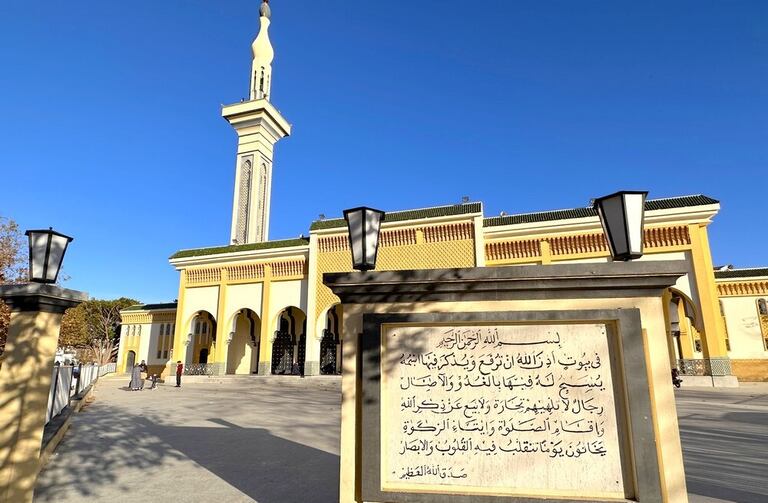 بسم الله الرحمن الرحيم
في بيوت أذن الله أن ترفع ويذكر فيها اسمه
يسبح له فيها بالغدو والآصال
رجال لا تلهيهم تجارة ولا بيع عن ذكر الله
وإقام الصلوة وإيتاء الزكوة
يخافون يوما تتقلب فيه القلوب والأبصار
صدق الله العظيم